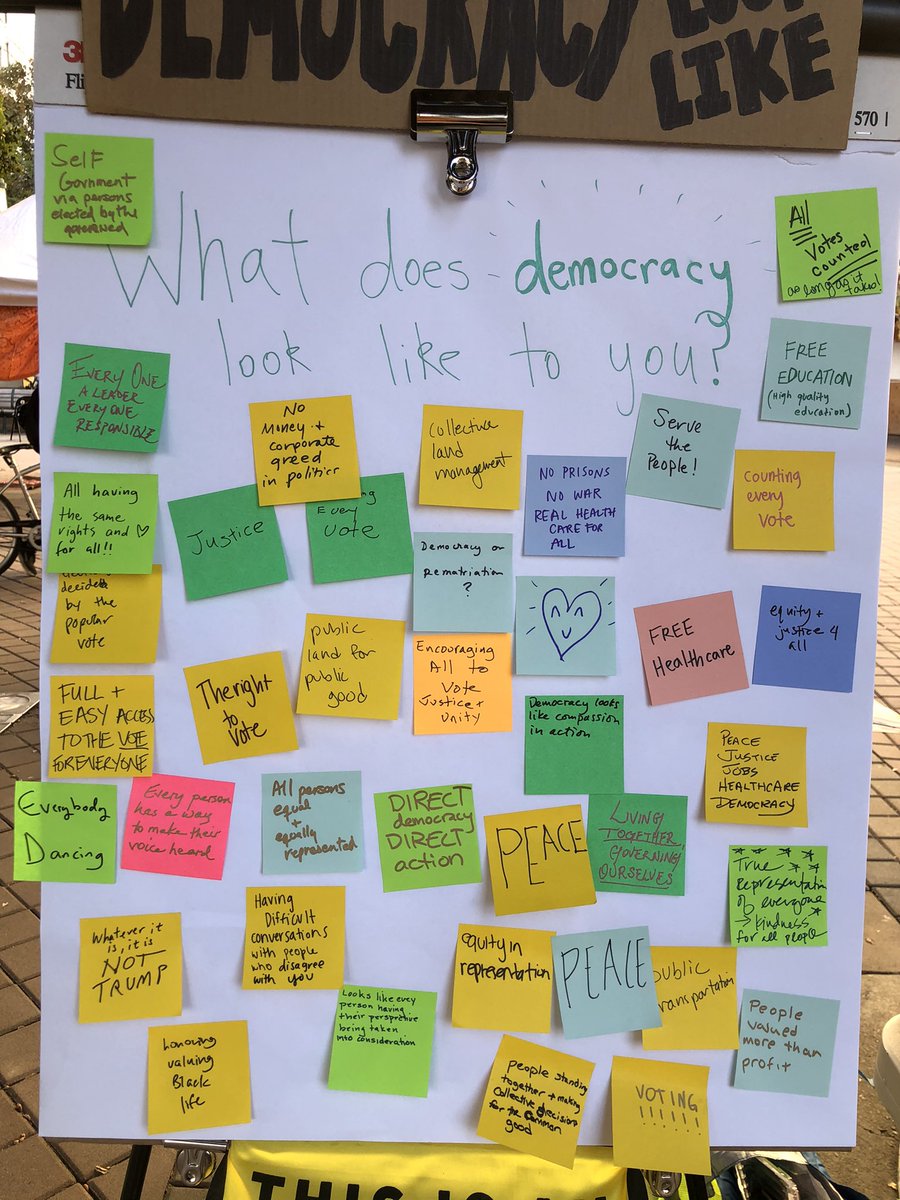 DEMOCRACY LOOK
LIKE
3
Fli
570
Self
Government
via persons
elected by the
governed
What does democracy
look like to you?
All
Votes
counted
as long as it
takes!
FREE
EDUCATION
(High quality
education)
EVERY ONE
A LEADER
EVERYONE
RESPONSIBLE
No
Money +
corporate
greed
in politics
Collective
land
management
Serve
the
People!
NO PRISONS
NO WAR
REAL HEALTH
CARE FOR
ALL
counting
every
vote
All having
the same
rights and
for all!!
Justice
Every
Vote
Democracy or
rematriation
?
decided
by the
popular
vote
public
land for
public
good
Encouraging
All to
Vote
Justice +
Unity
FREE
Healthcare
equity +
justice 4
all
FULL +
EASY ACCESS
TO THE VOTE
FOR EVERYONE
The right
to
vote
Democracy looks
like compassion
in action
PEACE
JUSTICE
JOBS
HEALTHCARE
DEMOCRACY
Everybody
Dancing
Every person
has a way
to make their
voice heard
All persons
equal
+
equally
represented
DIRECT
democracy
DIRECT
action
PEACE
LIVING
TOGETHER
GOVERNING
OURSELVES
True
Representation
of everyone
→ kindness
for all people
Whatever it
is, it is
NOT
TRUMP
Having
Difficult
conversations
with people
who disagree
with you
equity in
representation
PEACE
public
transportation
Looks like every
person having
their perspective
being taken
into consideration
People
valued
more than
profit
honoring
valuing
Black
life
people standing
together + making
Collective decisions
for the common
good
VOTING
!!!!!!
THIS IS A